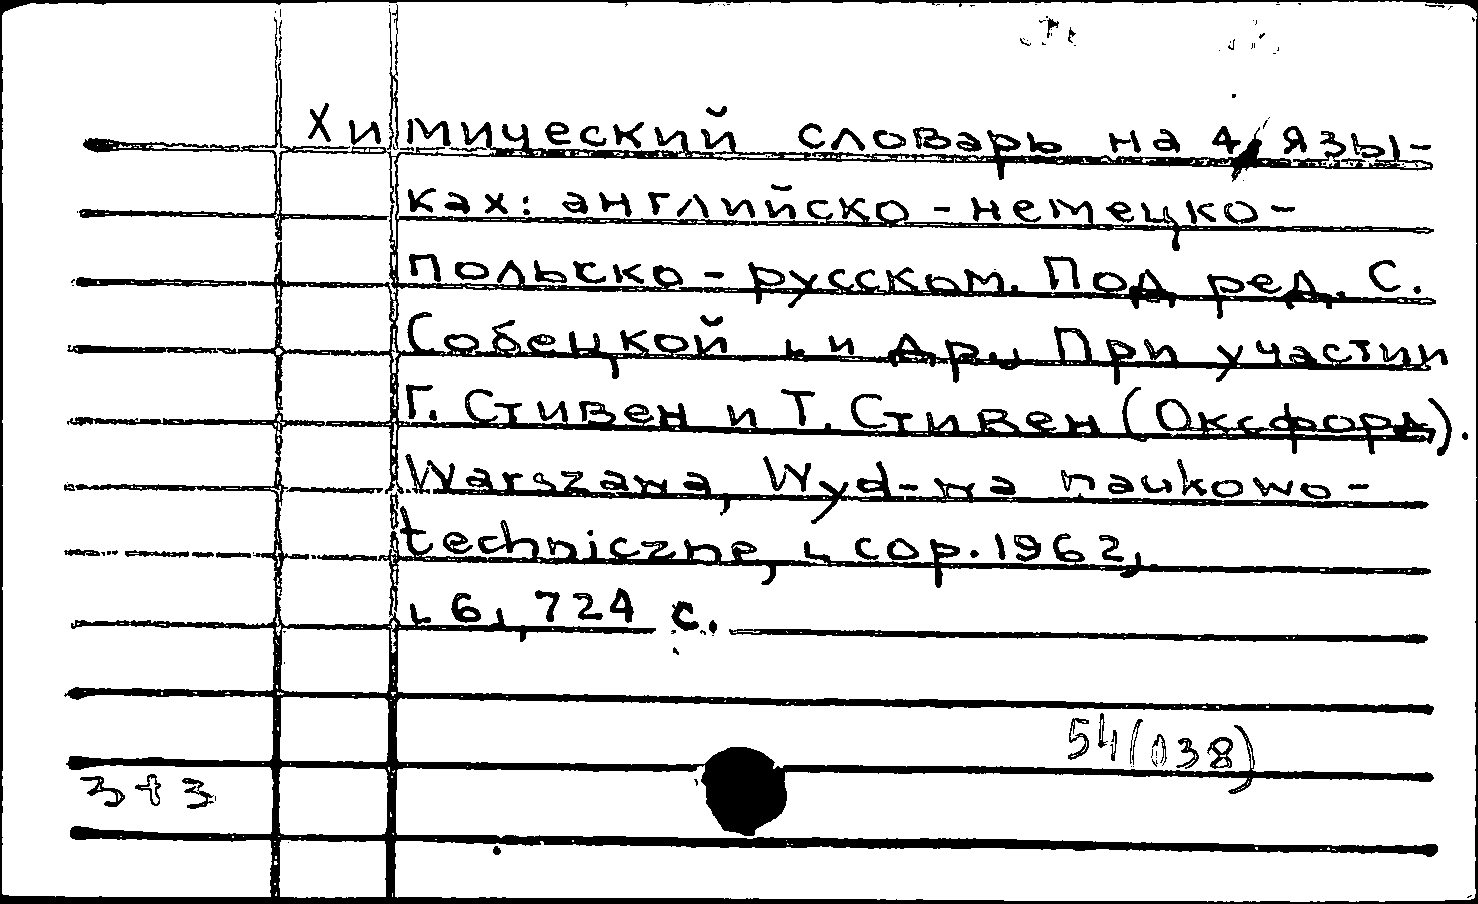 Химический словарь на 4 язы-
ках: английско-немецко-
польско-русском. Под ред. С.
Собецкой ⌞и др.⌟ При участии
Г. Стивен и Т. Стивен (Оксфорд).
Warszawa, Wyd-wa naukowo-
techniczne, ⌞cop. 1962⌟
⌞6⌟, 724 с.
54(038)
3+3